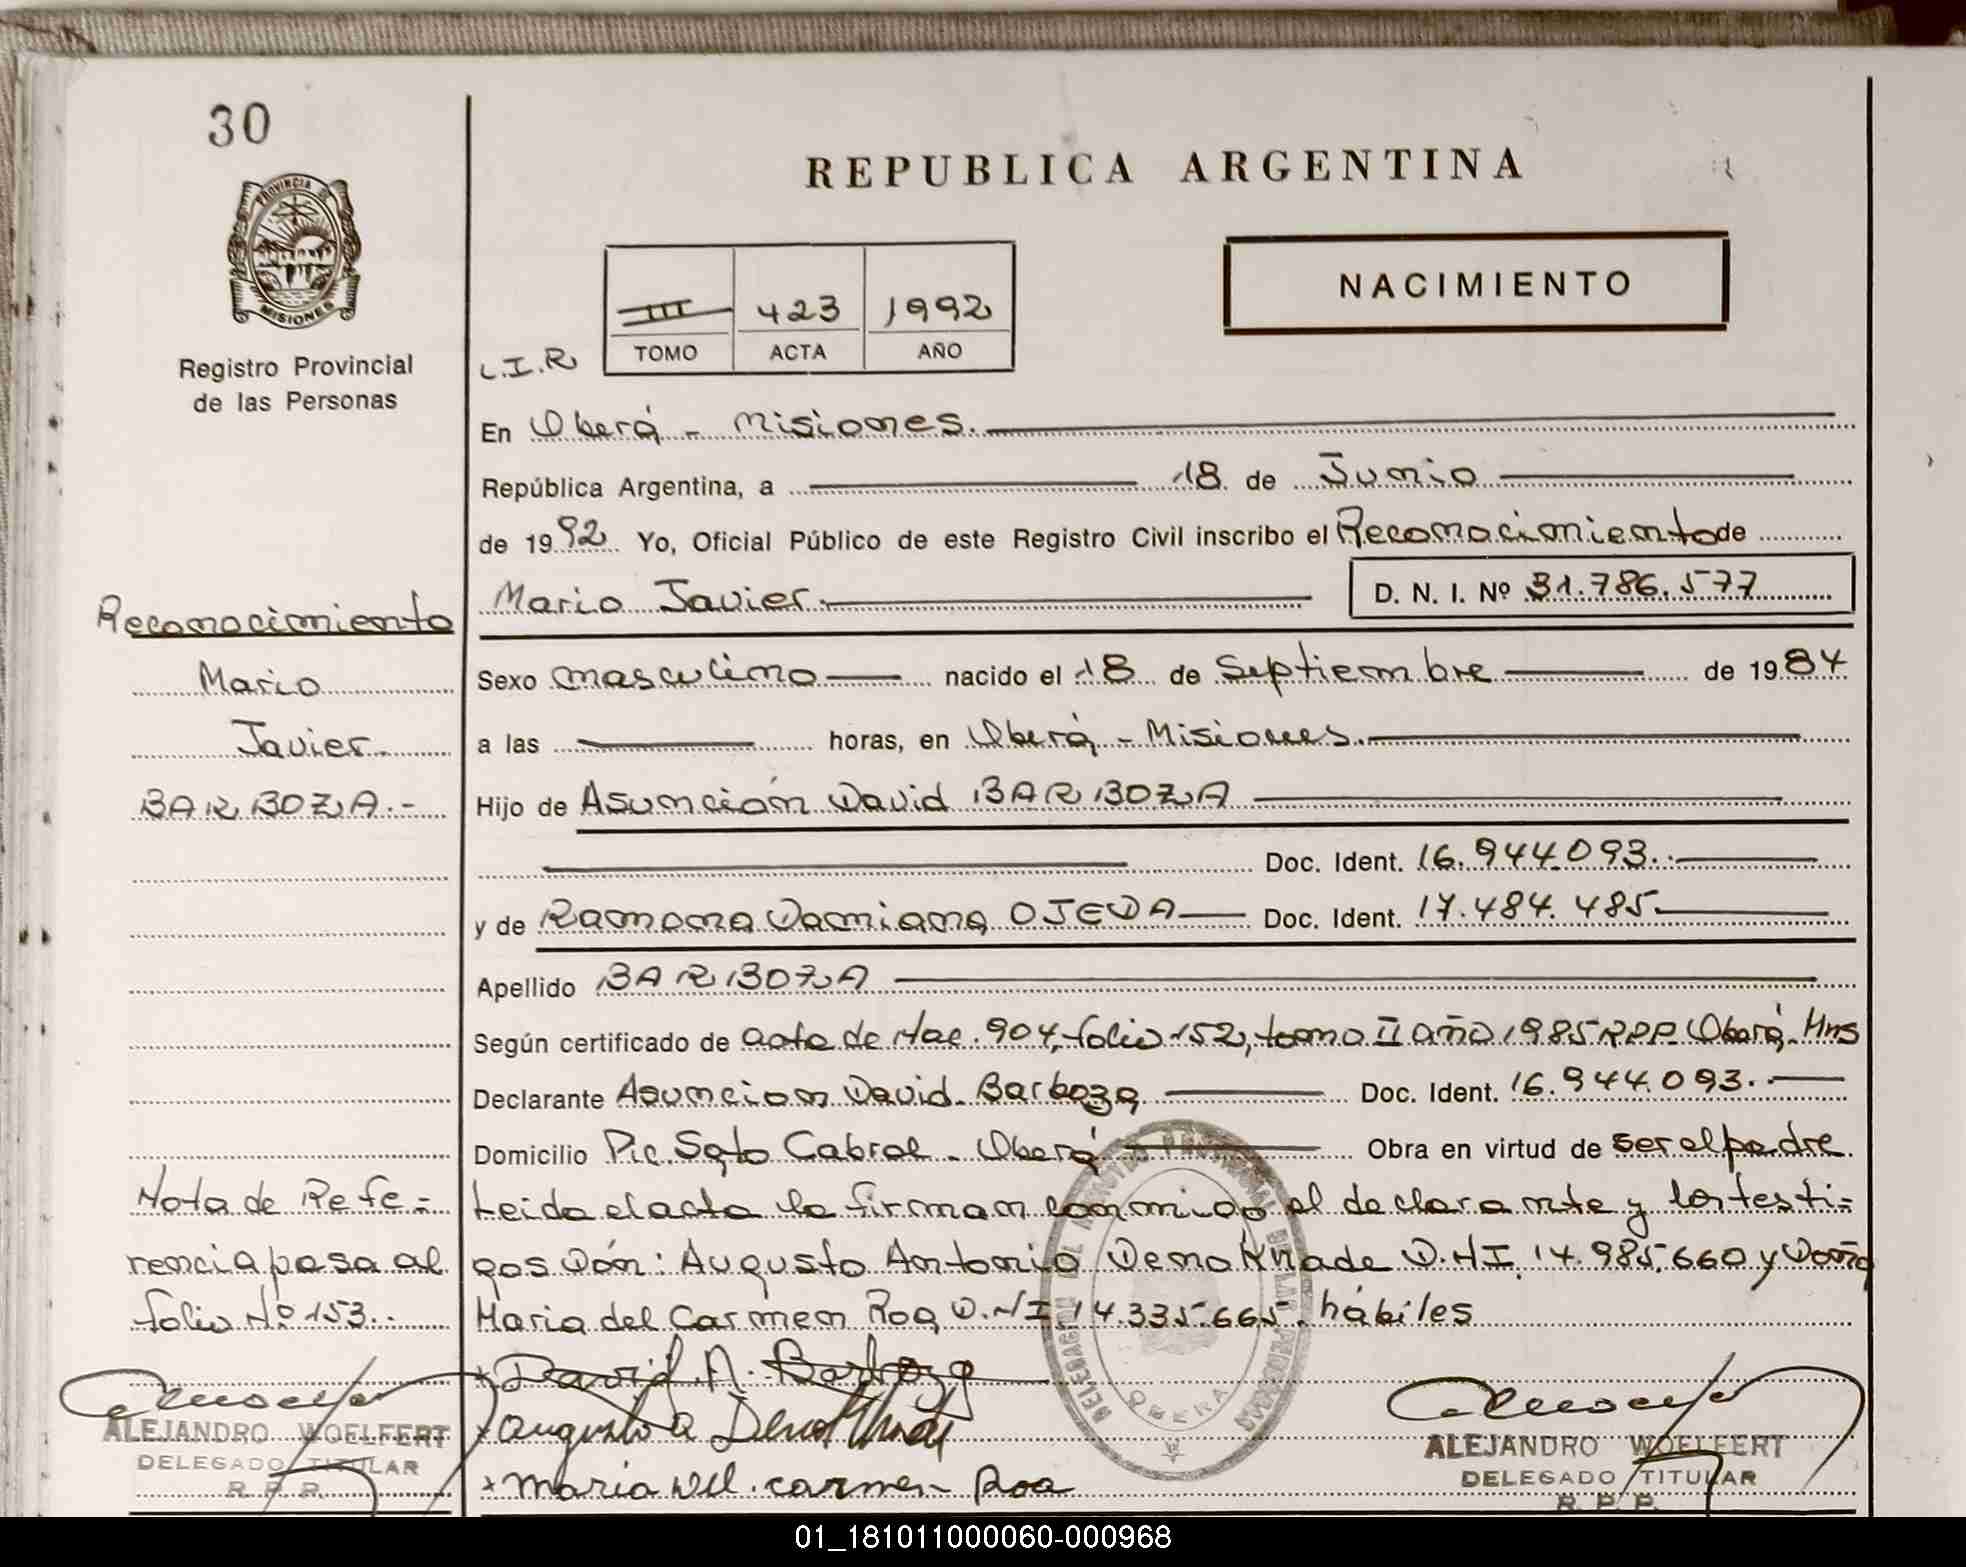 30
REPUBLICA ARGENTINA
PROVINCIA DE
MISIONES
Registro Provincial
de las Personas
NACIMIENTO
III 423 1992
TOMO ACTA AÑO
L.I.R
En Oberá - Misiones.
República Argentina, a 18 de Junio
de 1992 Yo, Oficial Público de este Registro Civil inscribo el Reconocimiento de
Mario Javier. D. N. I. Nº 31.786.577
Reconocimiento
Mario
Javier
BARBOZA.-
Sexo masculino nacido el 18 de Septiembre de 1984
a las horas, en Oberá - Misiones.
Hijo de Asunción David BARBOZA
Doc. Ident. 16.944.093.
y de Ramona Damiana OJEDA Doc. Ident. 17.484.485
Apellido BARBOZA
Según certificado de acta de Nac. 904, folio 152, tomo II año 1985 RPP. Oberá. Mns
Declarante Asuncion David Barboza Doc. Ident. 16.944.093.
Domicilio Pic. Sgto Cabral - Oberá Obra en virtud de ser el padre
Leida el acta la firman conmigo el declarante y los testi=
gos Dón: Augusto Antonio Demo Knade D.N.I. 14.985.660 y Doña
Maria del Carmen Roa D.N.I 14.335.665. hábiles
Nota de Refe=
rencia pasa al
folio Nº 153.
David A. Barboza
Augusto A
Maria del. Carmen Roa
OBERA
ALEJANDRO WOELFERT
DELEGADO TITULAR
R. P. P.
ALEJANDRO WOELFERT
DELEGADO TITULAR
R. P. P.
01_181011000060-000968